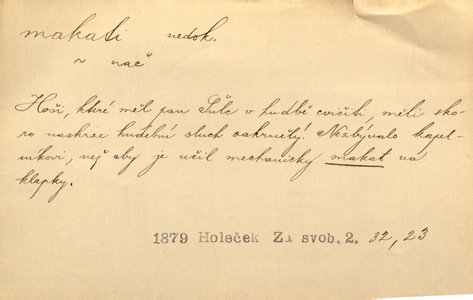 makati nedok.
~ nač
Hoši, které měl pan Šulc v hudbě cvičiti, měli sko-
ro naskrze hudební sluch zakrnělý. Nezbývalo kapel-
níkovi, než aby je učil mechanicky makat na
klapky.
1879 Holeček Za svob. 2. 32, 23